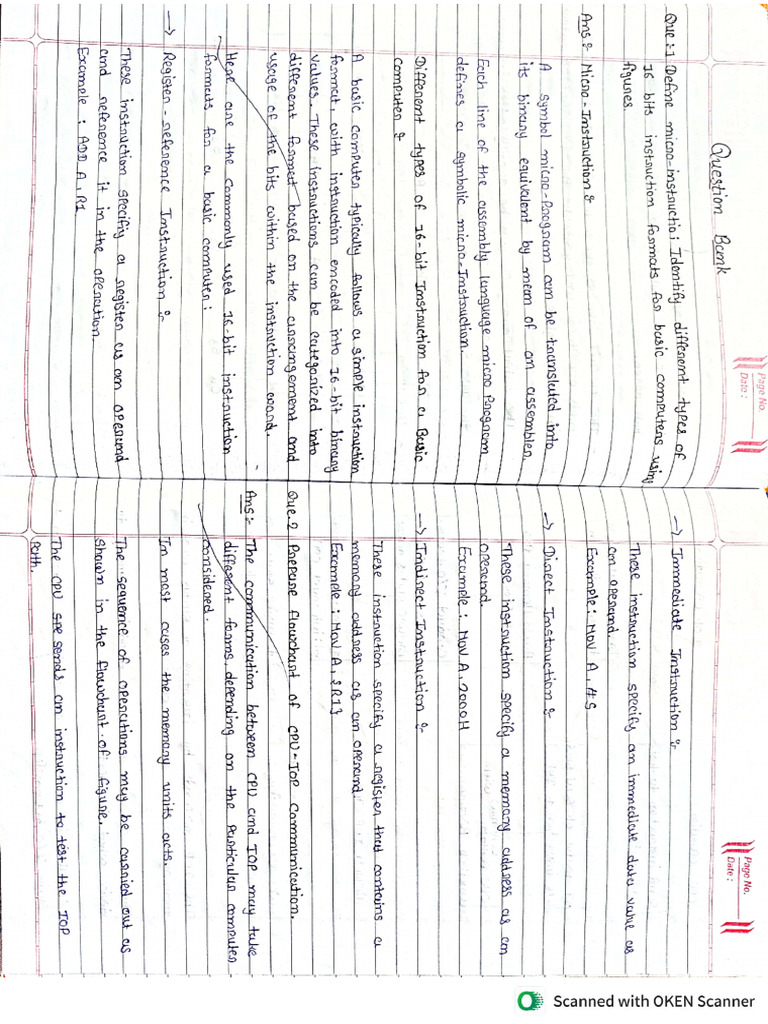 Question Bank
Page No.
Date :
Que :1 Define micro-instructio; Identify different types of
16 bits instruction formats for basic computers using
figures.
Ans : Micro-Instruction :-
A symbol micro-Program can be translated into
its binary equivalent by mean of an assembler.
Each line of the assembly language micro Program
defines a symbolic micro-Instruction.
Different types of 16-bit Instruction for a Basic
Computer :-
A basic computer typically follows a simple instruction
format, with instruction encoded into 16-bit binary
values. These instructions can be categorized into
different format based on the arrangement and
usage of the bits within the instruction word.
Here are the commonly used 16-bit instruction
formats for a basic computer :
→ Register-reference Instruction :-
These instruction specifiy a register as an operand
and reference it in the operation.
Example : ADD A, R1
Page No.
Date :
→ Immediate Instruction :-
These instruction specify an immediate data value as
an operand.
Example : MOV A, #5
→ Direct Instruction :-
These instruction specify a memory address as an
operand.
Example : MOV A, 2000H
→ Indirect Instruction :-
These instruction specify a register that contains a
memory address as an operand.
Example : MOV A,
Que.2 Prepare flowchart of CPU-IOP Communication.
Ans :- The communication between CPU and IOP may take
different forms, depending on the Particular computer
considered.
In most cases the memory units acts.
The sequence of operations may be carried out as
shown in the flowchart of figure.
The CPU sends an instruction to test the IOP
Path.
Scanned with OKEN Scanner